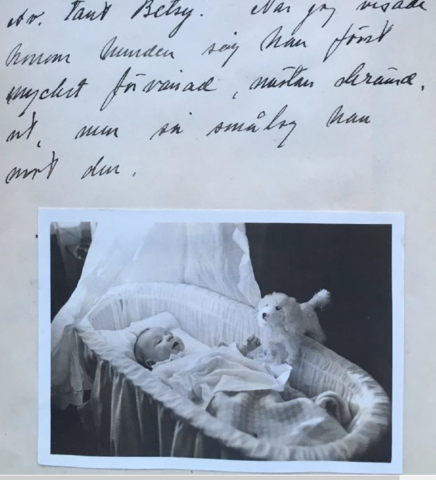 av. Tant Betsy. När jag visade
honom hunden såg han först
mycket förvånad, nästan skrämd,
ut, men så smålog han
mot den.